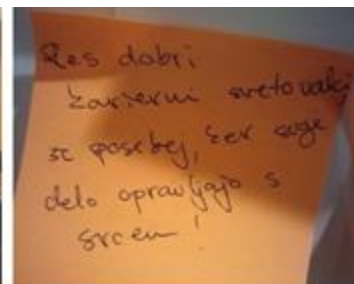 Res dobri
karierni svetovalci
so posebej, ker svoje
delo opravljajo s
srcem!